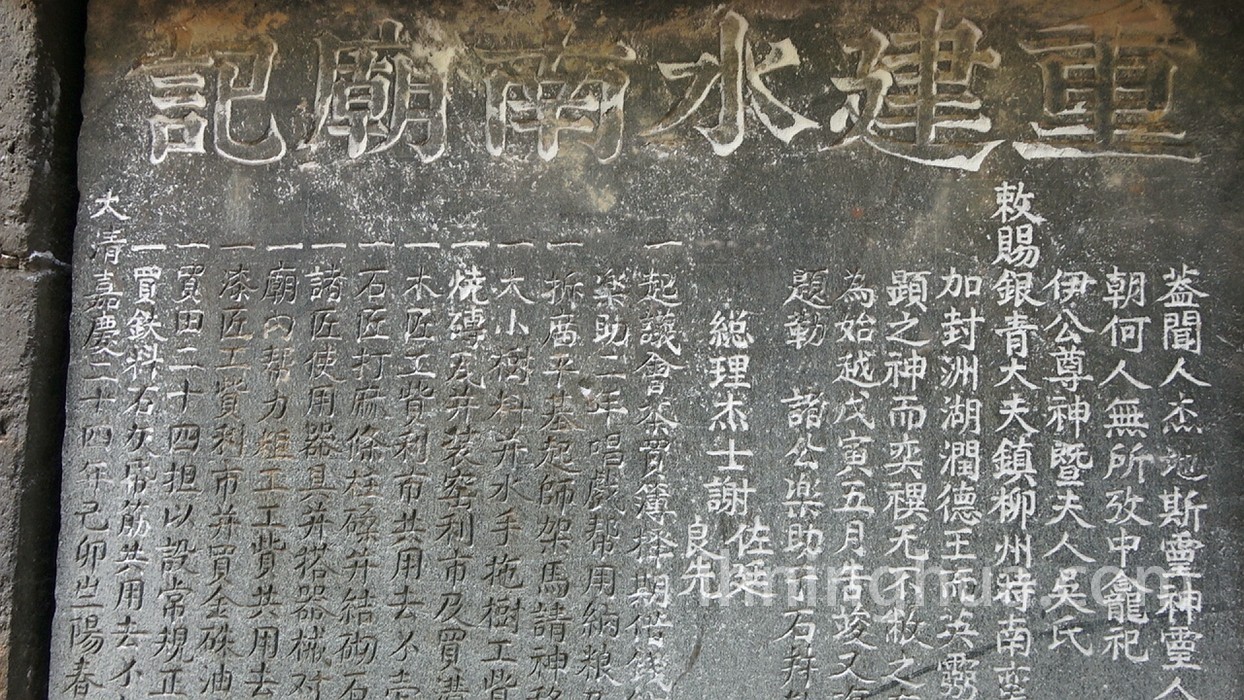 重建水南廟記
蓋聞人杰地斯靈神靈人
朝何人無所攷申龕祀
伊公尊神暨夫人吳氏
敕賜銀青大夫鎮柳州特南
加封洲湖潤德王而英靈
顯之神而奕禩无不赦之
為始越戊寅五月告竣又
題勒 諸公楽助于石
總理杰士謝佐
良先
一起議會茶買簿擇期借錢
楽助二年唱戲幣用納粮
一拆舊平基起師架馬請神移
一大小樹料并水手拖樹工貲
一燒磚瓦并装窑利市及買
一木匠工貲利市共用去不
一石匠打廊條柱磉并結砌石
一諸匠使用器具并搭器械对
一廟内帮力粗工工貲共用去
一漆匠工貲利市并買金硃油
一買田二十四担以設常規正
一買鉄料石灰吊筋共用去不
大清嘉慶二十四年己卯岁陽春
minghui.com